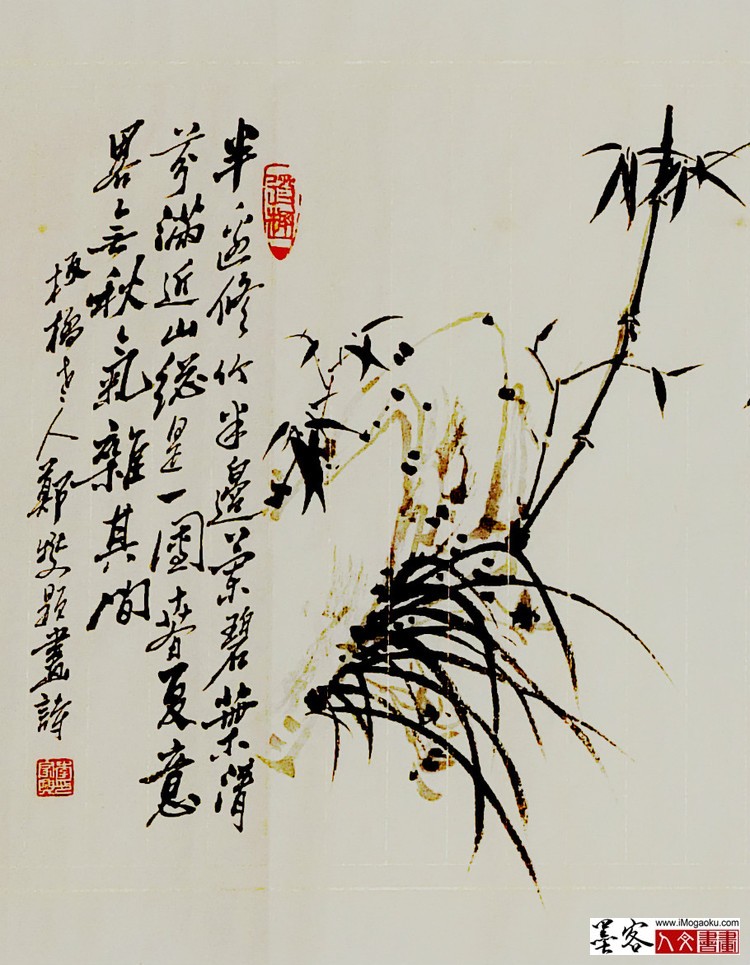 半边修竹半邊蘭碧葉清
芬滿近山總是一團春夏意
畧無秋氣雜其間
板橋老人鄭燮題畫詩
墨客
www.iMogaoku.com
人文書畫